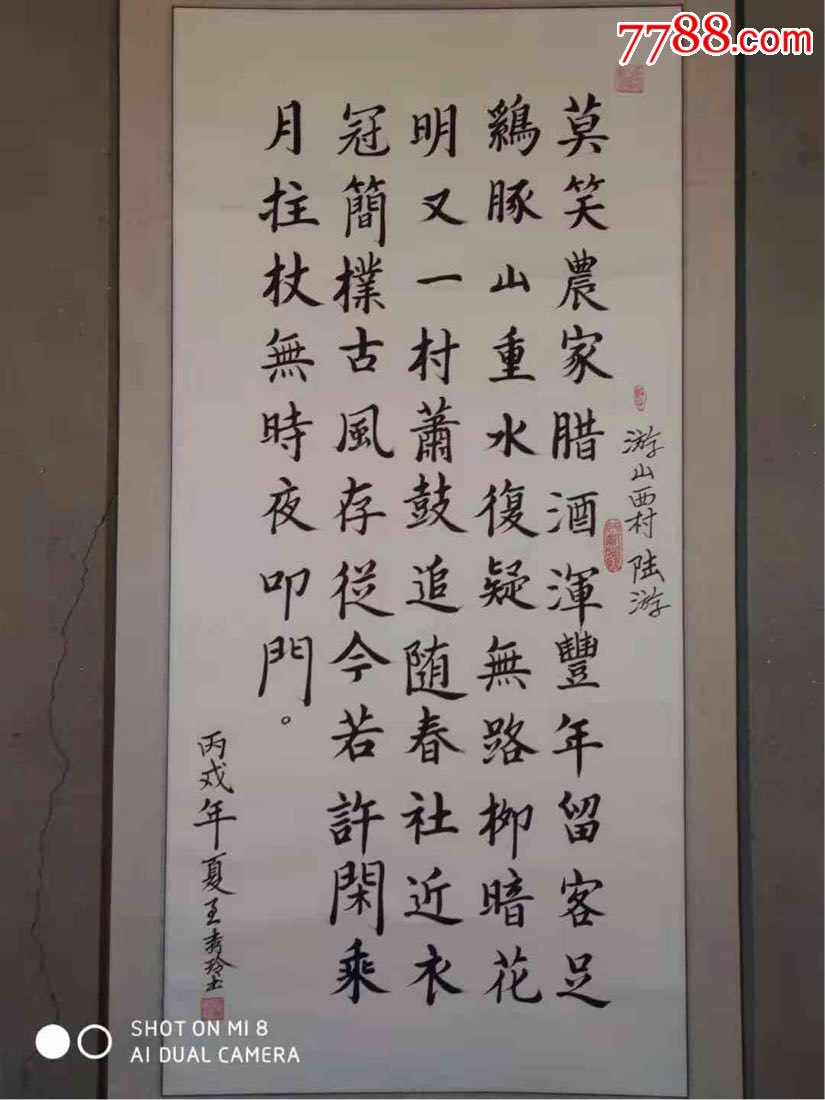 7788.com
游山西村 陆游
莫笑農家腊酒渾豐年留客足
鷄豚山重水復疑無路柳暗花
明又一村蕭鼓追随春社近衣
冠簡樸古風存從今若許閑乘
月拄杖無時夜叩門。
丙戌年夏王秀玲书
SHOT ON MI 8
AI DUAL CAMERA